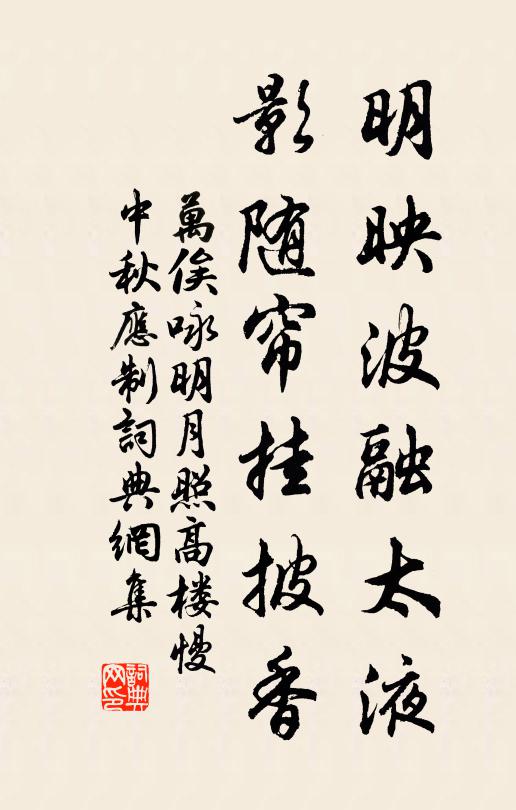 明映波融太液
影随帘挂披香
萬俟咏明月照高楼慢
中秋應制詞典網集
詞典
网印